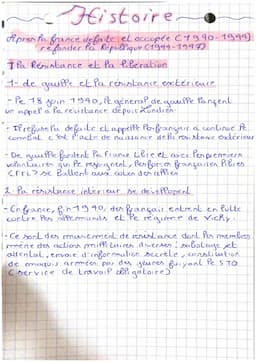 Histoire
Apres la france défaite et occupée (1940-1944)
refonder la République (1944-1947)
I la Résistance et la libération
1- de gaulle et la résistance extérieure
- le 18 juin 1940, le général de gaulle lance
un appel a la résistance depuis Londres
- Il refuse la défaite et appelle les français a continue le
combat c'est l'acte de naissance de la résistance extérieure
- De gaulle fondent la France libre et avec les premiers
volontaires qui le rejoignent, les forces françaises libres
(FFL) se battent aux côtés des alliés
2 la résistance intérieur se développent
- En france, fin 1940, des français entrent en lutte
contre les allemands et le régime de Vichy.
- Ce sont des mouvement de résistance dont les membres
mène des actions militaires diverses : sabotage et
attentat, envoie d'information secrète, constitution
de maquis armées par des jeunes fuyant le STO
(service de travail obligatoire)